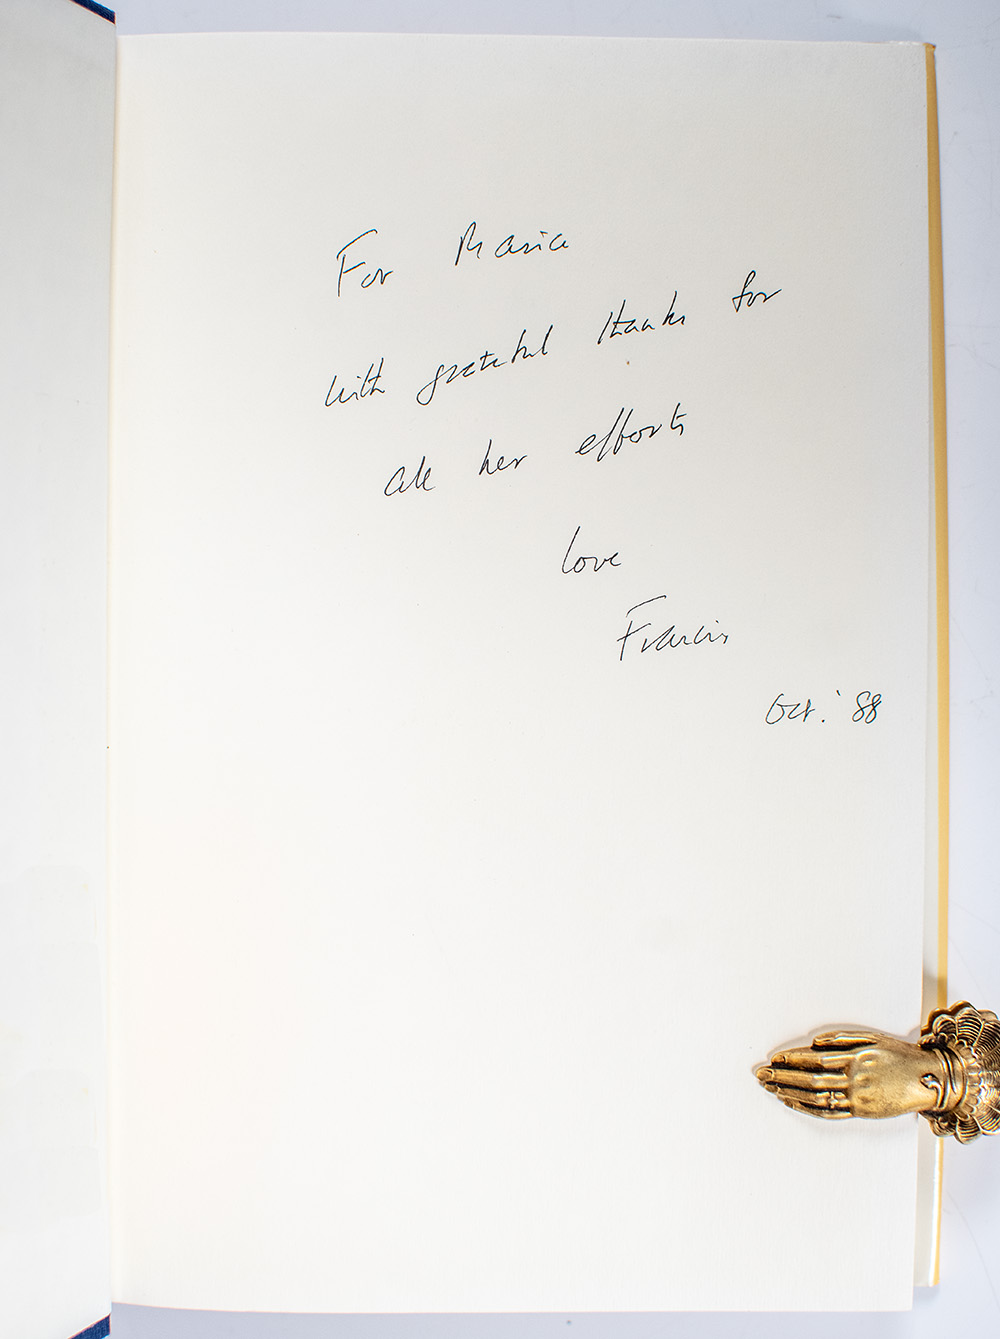 For Maria
with grateful thanks for
all her efforts
love
Francis
Oct. '88